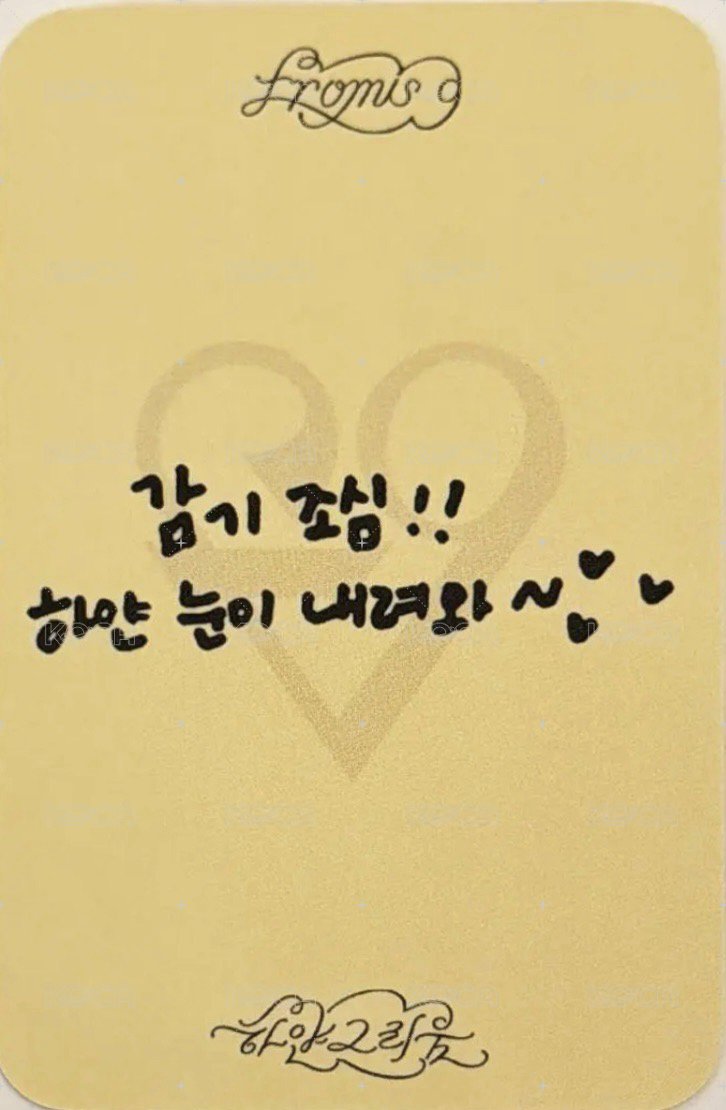 fromis_9
감기 조심!!
하얀 눈이 내려와~♥♥♥
하얀그리움